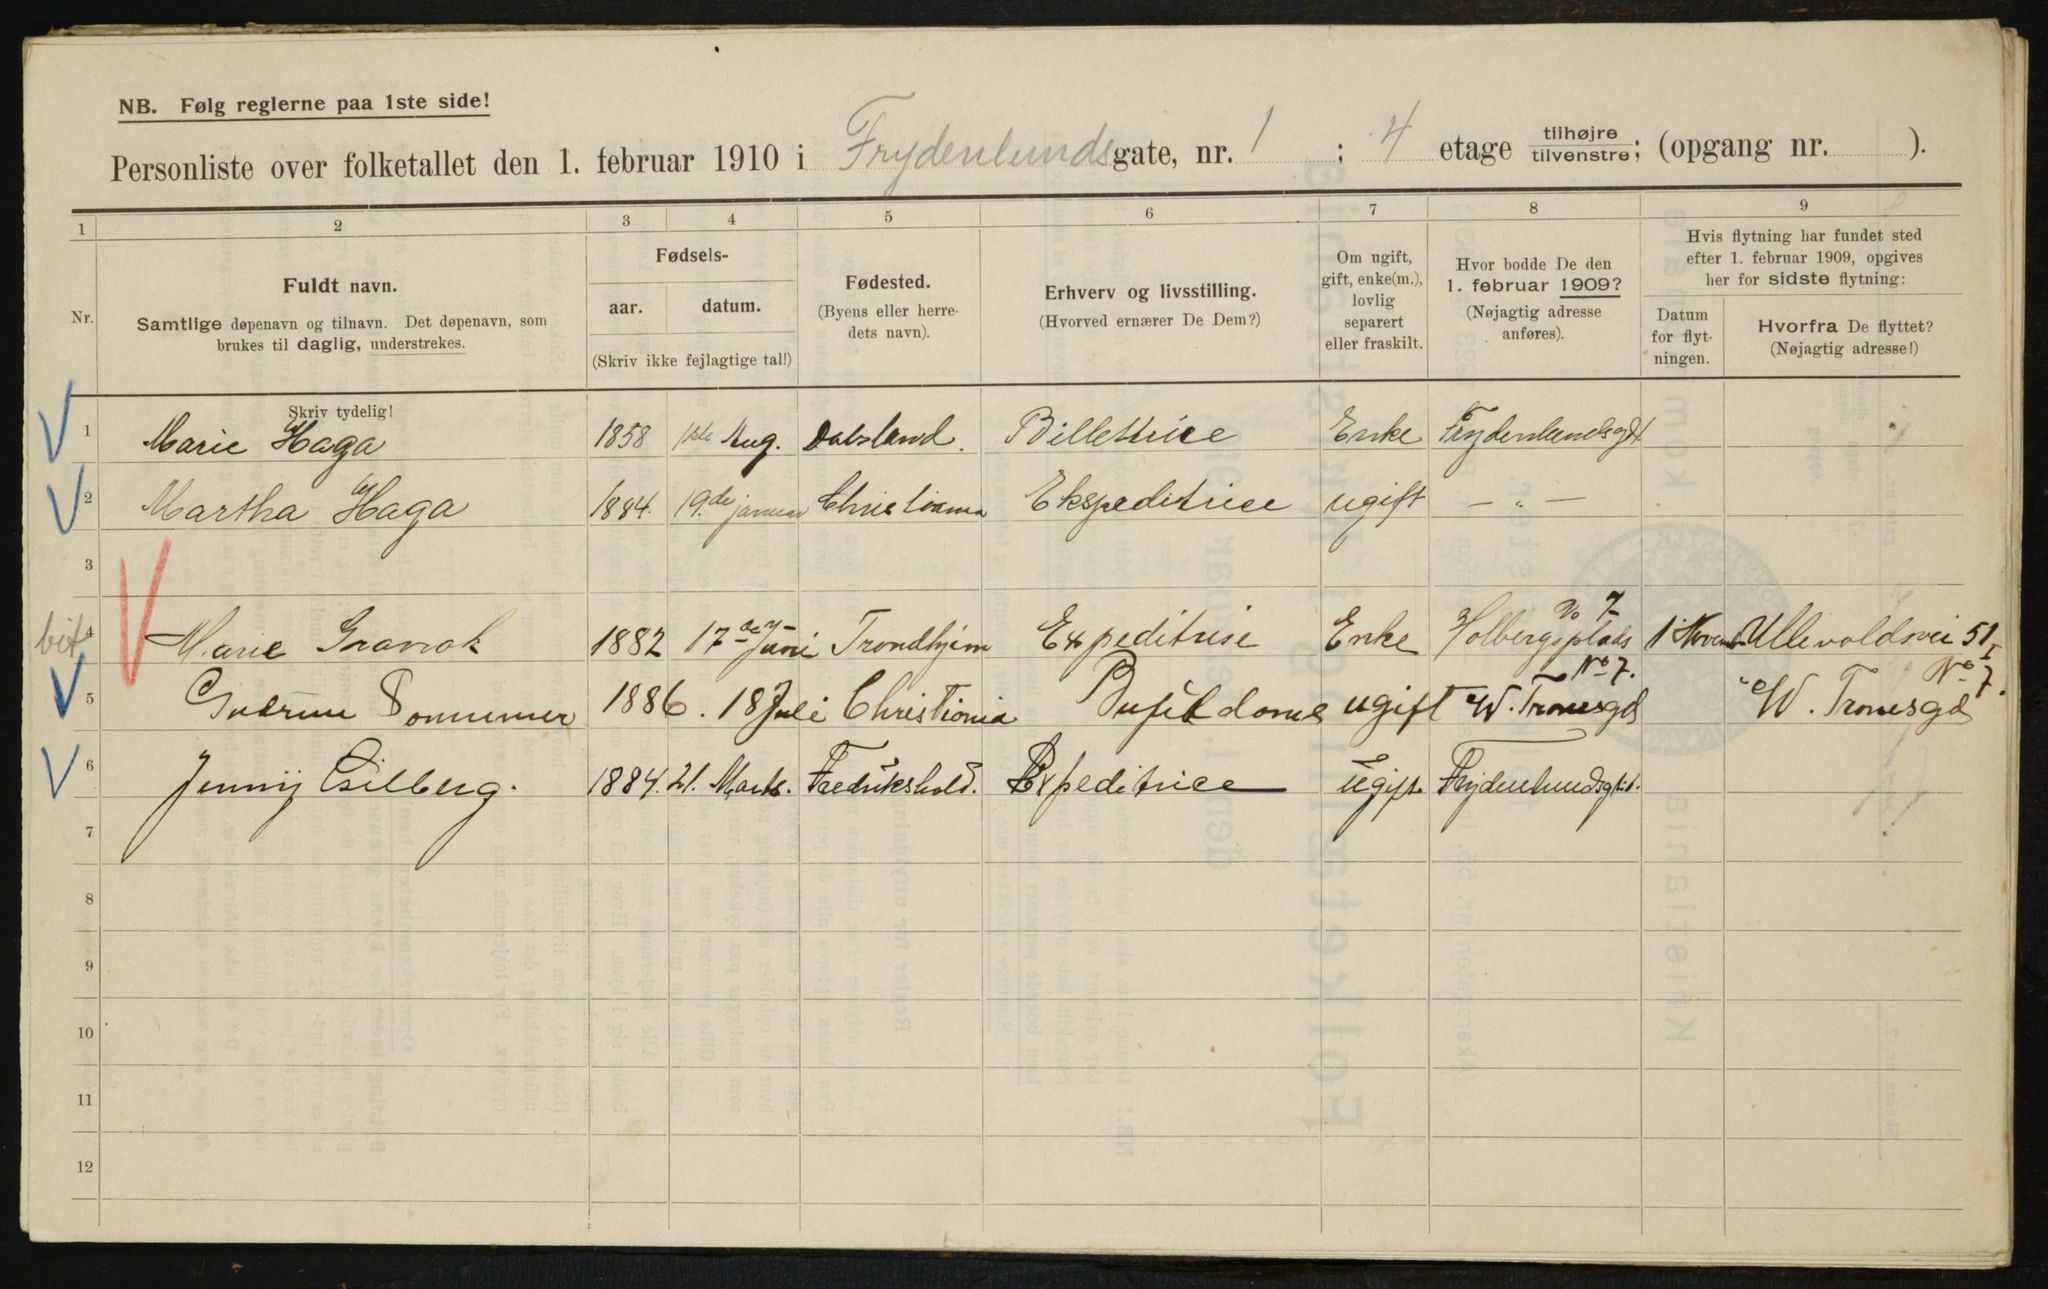 NB. Følg reglerne paa 1ste side!
Personliste over folketallet den 1. februar 1910 i Frydenlundsgate, nr. 1 ; 4 etage tilhøjre/tilvenstre; (opgang nr. ).
1 2 3 4 5 6 7 8 9
Nr.
Fuldt navn.
Samtlige døpenavn og tilnavn. Det døpenavn, som
brukes til daglig, understrekes.
Skriv tydelig!
Fødsels-
aar. datum.
(Skriv ikke fejlagtige tal!)
Fødested.
(Byens eller herre-
dets navn).
Erhverv og livsstilling.
(Hvorved ernærer De Dem?)
Om ugift,
gift, enke(m.),
lovlig
separert
eller fraskilt.
Hvor bodde De den
1. februar 1909?
(Nøjagtig adresse
anføres).
Hvis flytning har fundet sted
efter 1. februar 1909, opgives
her for sidste flytning:
Datum
for flyt-
ningen.
Hvorfra De flyttet?
(Nøjagtig adresse!)
1 Marie Haga 1858 Aug. Dalsland. Billettrice Enke Frydenlundsgt
2 Martha Haga 1884. 19de januar Christiania Ekspeditrice ugift — „ —
3
4 Marie 1882 17 Juni Trondhjem Expeditrise Enke Holbergsplads No 7 1 Novem Ullevoldsvei 51 I
5 Gudrun 1886. 18 Juli Christiania ugift W. Tranesgd No 7. W. Tranesgd No 7.
6 Jenny 1884. 21. Marts. Fredrikshald. Expeditrice ugift Frydenlundsgt 1.
7
8
9
10
11
12